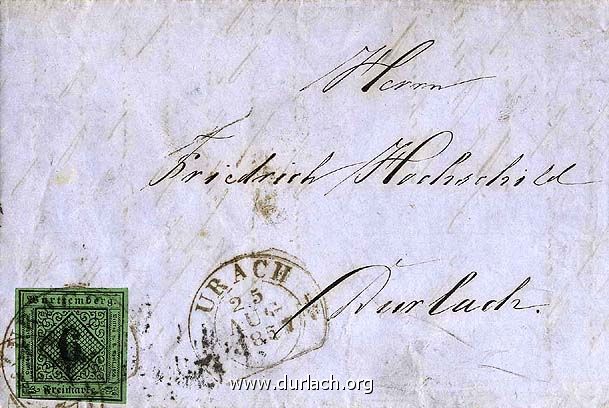 Herrn
Friedrich Hochschild
Durlach.
URACH
25
AUG
185
Württemberg.
6
Freimarke
www.durlach.org